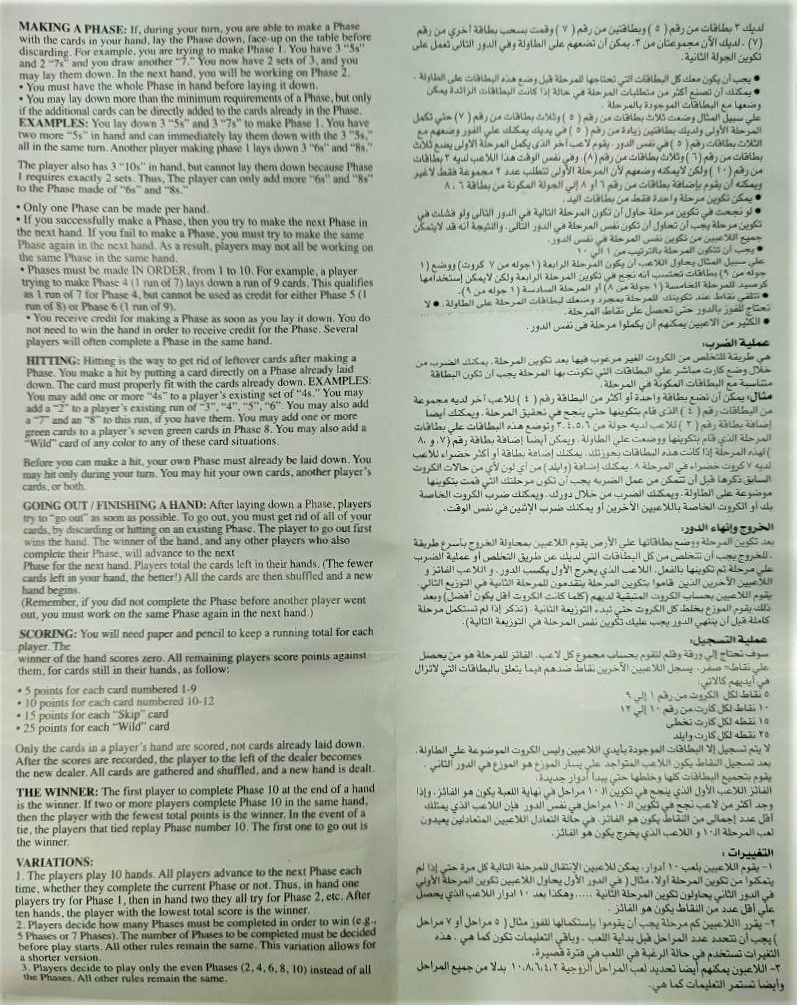 MAKING A PHASE: If, during your turn, you are able to make a Phase
with the cards in your hand, lay the Phase down, face-up on the table before
discarding. For example, you are trying to make Phase 1. You have 3 "5s"
and 2 "7s" and you draw another "7." You now have 2 sets of 3, and you
may lay them down. In the next hand, you will be working on Phase 2.
• You must have the whole Phase in hand before laying it down.
• You may lay down more than the minimum requirements of a Phase, but only
if the additional cards can be directly added to the cards already in the Phase.
EXAMPLES: You lay down 3 "5s" and 3 "7s" to make Phase 1. You have
two more "5s" in hand and can immediately lay them down with the 3 "5s,"
all in the same turn. Another player making phase 1 lays down 3 "6s" and "8s."
The player also has 3 "10s" in hand, but cannot lay them down because Phase
1 requires exactly 2 sets. Thus, The player can only add more "6s" and "8s"
to the Phase made of "6s" and "8s."
• Only one Phase can be made per hand.
• If you successfully make a Phase, then you try to make the next Phase in
the next hand. If you fail to make a Phase, you must try to make the same
Phase again in the next hand. As a result, players may not all be working on
the same Phase in the same hand.
• Phases must be made IN ORDER, from 1 to 10. For example, a player
trying to make Phase 4 (1 run of 7) lays down a run of 9 cards. This qualifies
as 1 run of 7 for Phase 4, but cannot be used as credit for either Phase 5 (1
run of 8) or Phase 6 (1 run of 9).
• You receive credit for making a Phase as soon as you lay it down. You do
not need to win the hand in order to receive credit for the Phase. Several
players will often complete a Phase in the same hand.
HITTING: Hitting is the way to get rid of leftover cards after making a
Phase. You make a hit by putting a card directly on a Phase already laid
down. The card must properly fit with the cards already down. EXAMPLES:
You may add one or more "4s" to a player's existing set of "4s." You may
add a "2" to a player's existing run of "3", "4", "5", "6". You may also add
a "7" and an "8" to this run, if you have them. You may add one or more
green cards to a player's seven green cards in Phase 8. You may also add a
"Wild" card of any color to any of these card situations.
Before you can make a hit, your own Phase must already be laid down. You
may hit only during your turn. You may hit your own cards, another player's
cards, or both.
GOING OUT / FINISHING A HAND: After laying down a Phase, players
try to "go out" as soon as possible. To go out, you must get rid of all of your
cards, by discarding or hitting on an existing Phase. The player to go out first
wins the hand. The winner of the hand, and any other players who also
complete their Phase, will advance to the next
Phase for the next hand. Players total the cards left in their hands. (The fewer
cards left in your hand, the better!) All the cards are then shuffled and a new
hand begins.
(Remember, if you did not complete the Phase before another player went
out, you must work on the same Phase again in the next hand.)
SCORING: You will need paper and pencil to keep a running total for each
player. The
winner of the hand scores zero. All remaining players score points against
them, for cards still in their hands, as follow:
• 5 points for each card numbered 1-9
• 10 points for each card numbered 10-12
• 15 points for each "Skip" card
• 25 points for each "Wild" card
Only the cards in a player's hand are scored, not cards already laid down.
After the scores are recorded, the player to the left of the dealer becomes
the new dealer. All cards are gathered and shuffled, and a new hand is dealt.
THE WINNER: The first player to complete Phase 10 at the end of a hand
is the winner. If two or more players complete Phase 10 in the same hand,
then the player with the fewest total points is the winner. In the event of a
tie, the players that tied replay Phase number 10. The first one to go out is
the winner.
VARIATIONS:
1. The players play 10 hands. All players advance to the next Phase each
time, whether they complete the current Phase or not. Thus, in hand one
players try for Phase 1, then in hand two they all try for Phase 2, etc. After
ten hands, the player with the lowest total score is the winner.
2. Players decide how many Phases must be completed in order to win (e.g.,
5 Phases or 7 Phases). The number of Phases to be completed must be decided
before play starts. All other rules remain the same. This variation allows for
a shorter version.
3. Players decide to play only the even Phases (2, 4, 6, 8, 10) instead of all
the Phases. All other rules remain the same.
لديك ٣ بطاقات من رقم ( ٥ ) وبطاقتين من رقم ( ٧ ) وقمت بسحب بطاقة أخري من رقم
(٧) . لديك الأن مجموعتان من ٣. يمكن أن تضعهم على الطاولة وفي الدور التالى تعمل على
تكوين الجولة الثانية.
● يجب أن يكون معك كل البطاقات التي تحتاجها للمرحلة قبل وضع هذه البطاقات علي الطاولة .
● يمكنك أن تصنع أكثر من متطلبات المرحلة في حالة إذا كانت البطاقات الزائدة يمكن
وضعها مع البطاقات الموجودة بالمرحلة .
علي سبيل المثال وضعت ثلاث بطاقات من رقم ( ٥ ) وثلاث بطاقات من رقم ( ٧) حتي تكمل
المرحلة الأولى ولديك بطاقتين زيادة من رقم ( ٥ ) في يديك يمكنك علي الفور وضعهم مع
الثلاث بطاقات رقم ( ٥ ) في نفس الدور. يقوم لاعب آخر الذى يكمل المرحلة الاولى يضع ثلاث
بطاقات من رقم ( ٦ ) وثلاث بطاقات من رقم ( ٨). وفي نفس الوقت هذا اللاعب لديه ٣ بطاقات
من رقم ( ١٠ ) ولكن لايمكنه وضعهم لأن المرحلة الأولى تتطلب عدد ٢ مجموعة فقط لاغير
ويمكنه أن يقوم بإضافة بطاقات من رقم ٦ أو ٨ إلي الجولة المكونة من بطاقة ٦ ، ٨
● يمكن تكوين مرحلة واحدة فقط من بطاقات اليد .
● لو نجحت في تكوين مرحلة حاول أن تكون المرحلة التالية في الدور التالى ولو فشلت في
تكوين مرحلة يجب أن تحاول أن تكون نفس المرحلة في الدور التالى. والنتيجة أنه قد لايتمكن
جميع اللاعبين من تكوين نفس المرحلة في نفس الدور.
● يجب أن تتكون المرحلة بالترتيب من ١ الي ١٠
علي سبيل المثال يحاول اللاعب أن يكون المرحلة الرابعة (١جوله من ٧ كروت) ووضع (١
جوله من ٩) بطاقات تحتسب أنه نجح في تكوين المرحلة الرابعة ولكن لايمكن إستخدامها
كرصيد للمرحلة الخامسة (١ جولة من ٨) أو المرحلة السادسة (١ جوله من ٩).
● تتلقي نقاط عند تكوينك للمرحلة بمجرد وضعك لبطاقات المرحلة علي الطاولة. ● لا
تحتاج للفوز بالدور حتى تحصل علي نقاط المرحلة.
● الكثير من الاعبين يمكنهم أن يكملوا مرحلة فى نفس الدور.
عملية الضرب:
هي طريقة للتخلص من الكروت الغير مرغوب فيها بعد تكوين المرحلة. يمكنك الضرب من
خلال وضع كارت مباشر علي البطاقات التي تكونت بها المرحلة يجب أن تكون البطاقة
متناسبة مع البطاقات المكونة في المرحلة.
مثال: يمكن أن تضع بطاقة واحدة أو أكثر من البطاقة رقم ( ٤ ) للاعب آخر لديه مجموعة
من البطاقات رقم ( ٤ ) الذى قام بتكوينها حتي ينجح في تحقيق المرحلة. ويمكنك أيضا
إضافة بطاقة رقم ( ٢ ) للاعب لديه جولة من ٣،٤،٥،٦ وتوضع هذه البطاقات علي بطاقات
المرحلة الذي قام بتكوينها ووضعت علي الطاولة. ويمكن أيضاً إضافة بطاقة رقم (٧، و ٨٠
) لهذه المرحلة إذا كانت هذه البطاقات بحوزتك. يمكنك إضافة بطاقة أو أكثر حضراء للاعب
لديه ٧ كروت خضراء في المرحلة ٨. يمكنك إضافة (وايلد) من أي لون لأي من حالات الكروت
السابق ذكرها قبل أن تتمكن من عمل الضربه يجب أن تكون مرحلتك التي قمت بتكوينها
موضوعة علي الطاولة. ويمكنك الضرب من خلال دورك. ويمكنك ضرب الكروت الخاصة
بك أو الكروت الخاصة باللاعبين الأخرين أو يمكنك ضرب الإثنين في نفس الوقت.
الخروج وإنهاء الدور:
بعد تكوين المرحلة ووضع بطاقاتها على الأرض يقوم اللاعبين بمحاولة الخروج بأسرع طريقة
.للخروج يجب أن تتخلص من كل البطاقات التي لديك عن طريق التخلص أو عملية الضرب
علي مرحلة تم تكوينها بالفعل. اللاعب الذي يخرج الأول يكسب الدور. و اللاعب الفائز و
اللاعبين الأخرين الذين قاموا بتكوين المرحلة يتقدمون للمرحلة الثانية في التوزيع التالي.
يقوم اللاعبين بحساب الكروت المتبقية لديهم (كلما كانت الكروت أقل يكون أفضل) وبعد
ذلك يقوم الموزع بخلط كل الكروت حتي تبدء التوزيعة الثانية . (تذكر إذا لم تستكمل مرحلة
كاملة قبل أن ينتهي الدور يجب عليك تكوين نفس المرحلة في التوزيعة الثالية).
عملية التسجيل:
سوف تحتاج إلي ورقة وقلم لتقوم بحساب مجموع كل لاعب. الفائز للمرحلة هو من يحصل
علي نقاط= صفر. يسجل اللاعبين الأخرين نقاط ضدهم فيما يتعلق بالبطاقات التي لاتزال
في أيديهم كالاتي.
٥ نقاط لكل الكروت من رقم ١ إلي ٩
١٠ نقاط لكل كارت من رقم ١٠ إلي ١٢
١٥ نقطه لكل كارت تخطى
٢٥ نقطه لكل كارت وايلد
لا يتم تسجيل إلا البطاقات الموجودة بأيدي اللاعبين وليس الكروت الموضوعة علي الطاولة.
بعد تسجيل النقاط يكون اللاعب المتواجد علي يسار الموزع هو الموزع في الدور الثاني .
يقوم بتجميع البطاقات كلها وخلطها حتي يبدأ أدوار جديدة.
الفائز اللاعب الأول الذي ينجح في تكوين الـ ١٠ مراحل في نهاية اللعبة يكون هو الفائز. وإذا
وجد أكثر من لاعب نجح في تكوين الـ ١٠ مراحل في نفس الدور فإن اللاعب الذي يمتلك
أقل عدد إجمالى من النقاط يكون هو الفائز. في حالة التعادل اللاعبين المتعادلين يعيدون
لعب المرحلة الـ١٠ و اللاعب الذي يخرج يكون هو الفائز.
التغييرات :
١- يقوم اللاعبين بلعب ١٠ أدوار، يمكن للاعبين الإنتقال للمرحلة التالية كل مرة حتي إذا لم
يتمكنوا من تكوين المرحلة أولا. مثال ( في الدور الأول يحاول اللاعبين تكوين المرحلة الأولي
في الدور الثاني يحاولون تكوين المرحلة الثانية ..... وهكذا بعد ١٠ ادوار اللاعب الذي يحصل
علي أقل عدد من النقاط يكون هو الفائز .
٢- يقرر الاعبين كم مرحلة يجب أن يقوموا بإستكمالها للفوز مثال ( ٥ مراحل أو ٧ مراحل
) يجب أن تتحدد عدد المراحل قبل بداية اللعب . وباقي التعليمات تكون كما هي . هذه
التغيرات تستخدم في حالة الرغبة في اللعب في فترة قصيرة.
٣- اللاعبون يمكنهم أيضا تحديد لعب المراحل الزوجية ١٠،٨،٦،٤،٢ بدلا من جميع المراحل
وأيضا تستمر التعليمات كما هي.